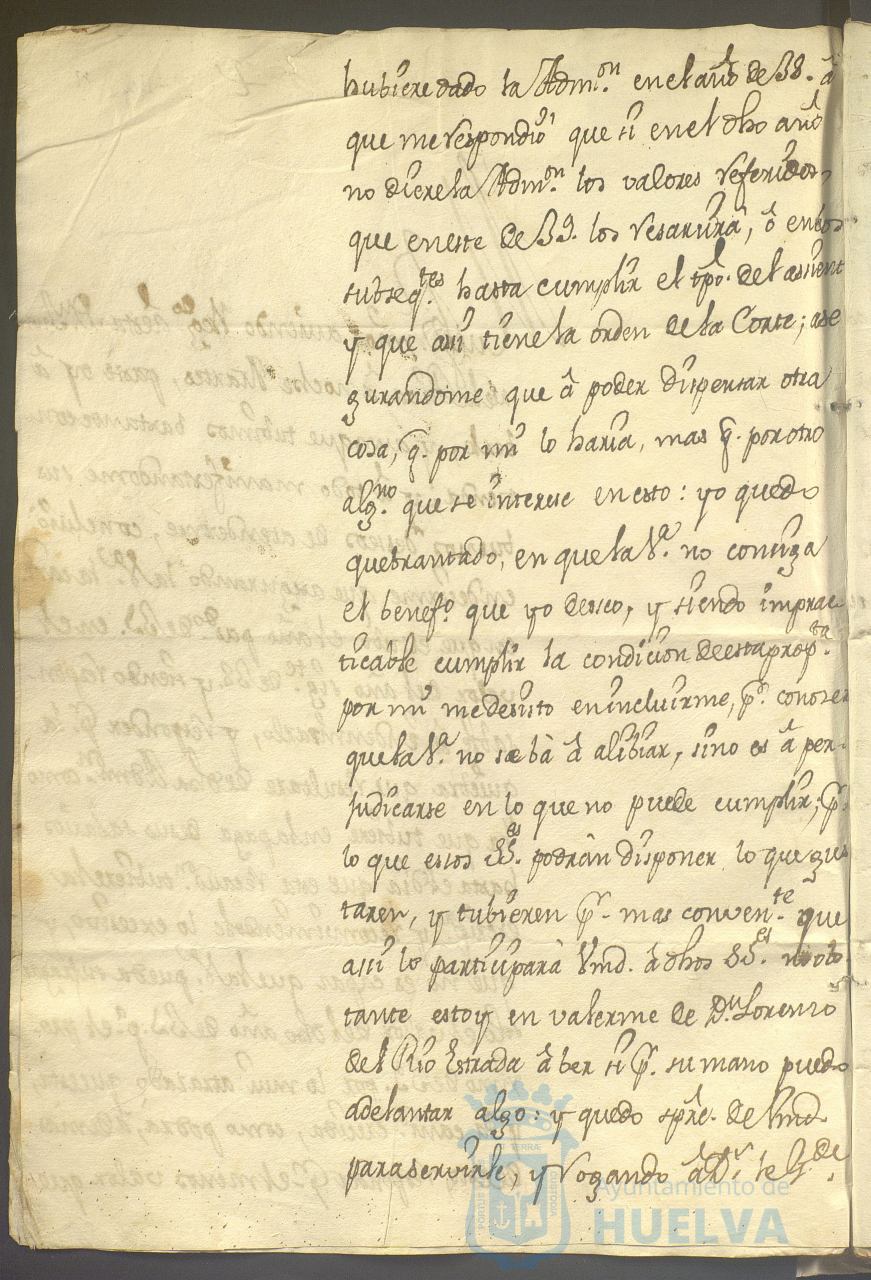 hubiere dado la Adm.on en el año de 38. à
que me respondiò que si en el dho año
no diere la Adm.on los valores referidos,
que en este de 39. los resarzirà, ò en los
subseq.tes hasta cumplir el tpo. del assient
y que assi tiene la orden de la Corte; ase
gurandome que à poder dispensar otra
cosa, q. por mi lo haria, mas q. por otro
alg.no que se interese en esto: yo quedo
quebrantado, en que la V.a no consiga
el benef.o que yo deseo, y siendo imprac
ticable cumplir la condicion de esta prop.ta
por mi me desisto en incluirme, p.r conocer
que la V.a no se bà à alibiar, sino es à per-
judicarse en lo que no puede cumplir; p.r
lo que estos SS.es podràn disponer lo que gus
taren, y tubieren p.r mas conven.te que
assi lo participarà Vmd. à dhos SS.es no obs
tante estoy en valerme de D.n Lorenzo
del Rio Estrada à ber si p.r su mano puedo
adelantar algo: y quedo spre. de Vmd
para servirle, y rogando à D.s le g.de
Ayuntamiento de
HUELVA